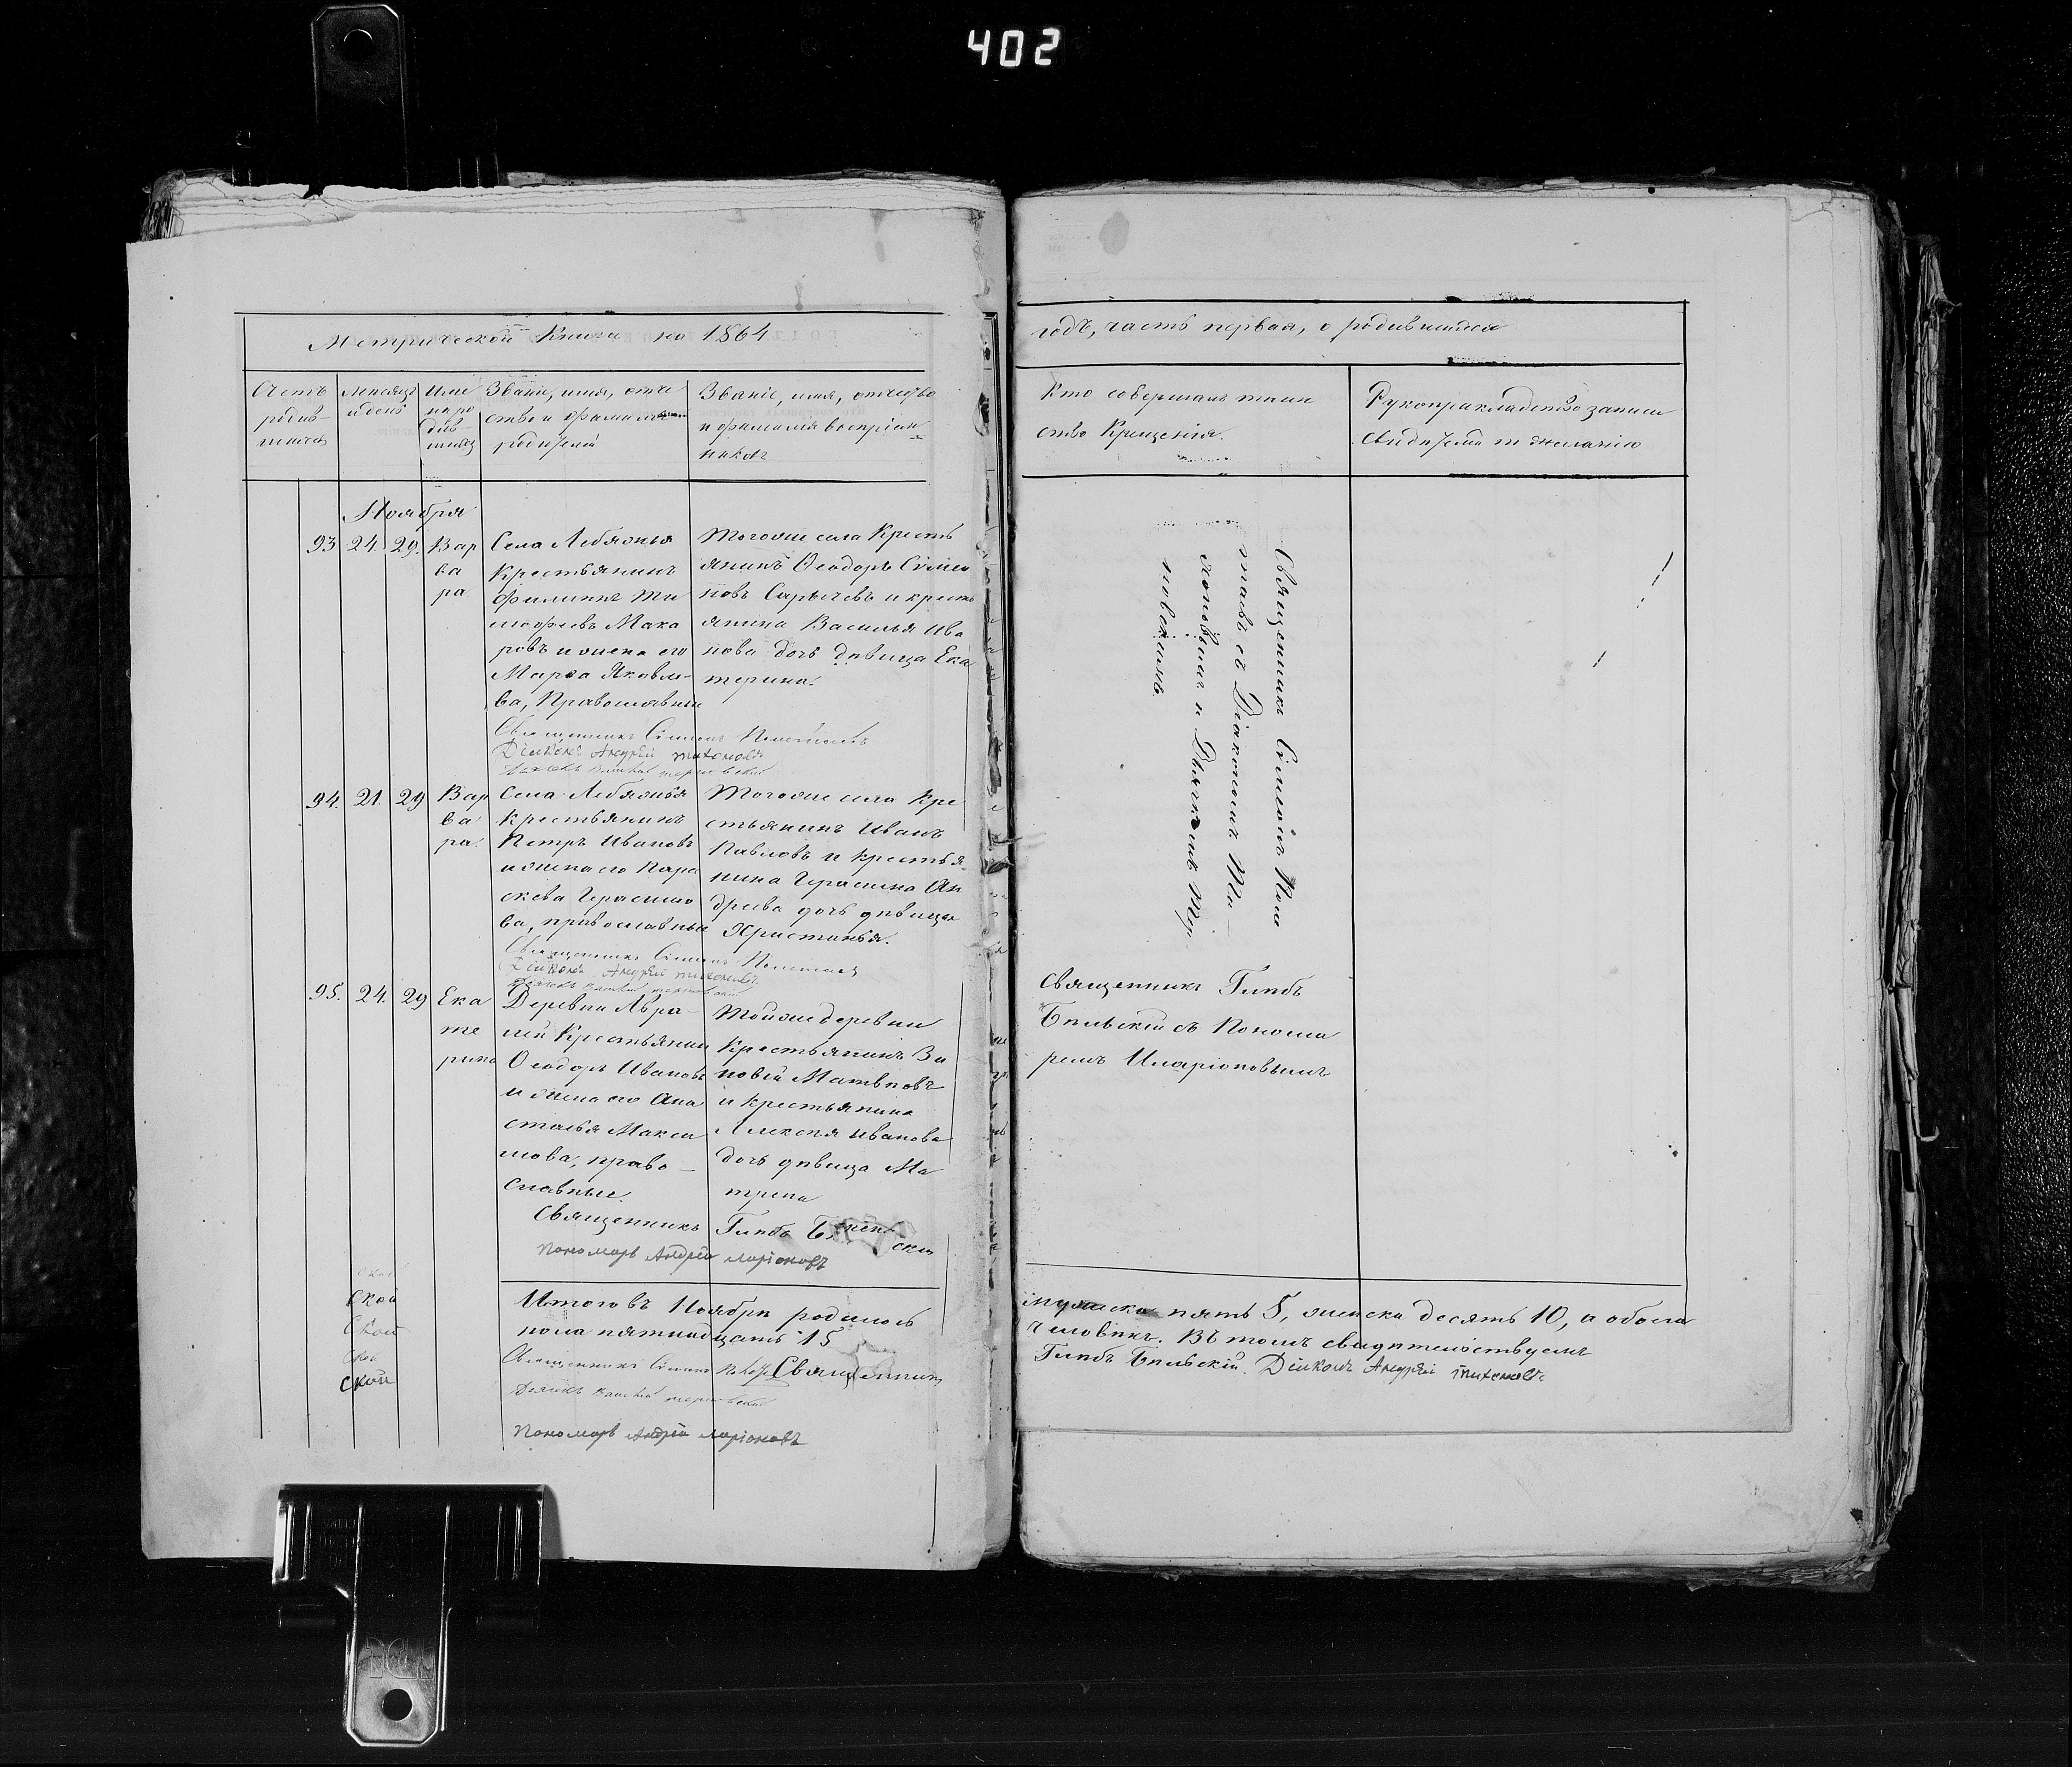 402
Метрической Книги на 1864
годъ, часть первая, о родившихся
Счетъ
родив-
шихся
Месяцъ
и день
Име
на ро
див
шихся
Званіе, имя, отче
ство и фамилія
родителей
Званіе, имя, отчество
и фамилія воспріем-
никовъ
Кто совершалъ таин
ство Крещенія.
Рукоприкладство записи
свидетелей по желанію
Ноября
93 24. 29.
Вар
ва
ра
Села Лебяжья
Крестьянинъ
Филиппъ Ти
мофеевъ Мака
ровъ и жена его
Марѳа Яковле-
ва, Православные
Тогоже села Кресть
янинъ Ѳеодоръ Симео
новъ Сарычевъ и кресть
янина Василья Ива
нова дочь девица Ека
терина.
Священникъ Симеонъ
Діаконъ Андрей Тихоновъ
94. 21. 29
Вар
ва
ра.
Села Лебяжья
Крестьянинъ
Петръ Ивановъ
и жена его Пара
скева Герасимо
ва, православные
Тогоже села Кре
стьянинъ Иванъ
Павловъ и крестья
нина Герасима Ан
дреева дочь девица
Христинья.
Священникъ Симеонъ
Діаконъ Андрей Тихоновъ
Священникъ Симеонъ
съ Діакономъ Ти
хоновымъ и Дьячкомъ Тер
новскимъ.
95. 24. 29
Ека
те
рина
Деревни Авра
лей Крестьянинъ
Ѳеодоръ Ивановъ
и жена его Ана
стасья Макси
мова, право-
славные.
Тойже деревни
Крестьянинъ Зи
новій Матвеевъ
и крестьянина
Алексея Иванова
дочь девица Ма
трена
Священникъ Глебъ
Бельскій съ Понома
ремъ Иларіоновымъ
Священникъ Глебъ
Пономарь Андрей Ларіоновъ
ской
ской
Итого въ Ноябре родилось
мужеска пять 5, женска десять 10, а обоего
пола пятнадцать 15
человекъ. Въ томъ свидетельствуемъ
Священникъ Симеонъ Священникъ
Глебъ Бельскій. Діаконъ Андрей Тихоновъ
Пономарь Андрей Ларіоновъ